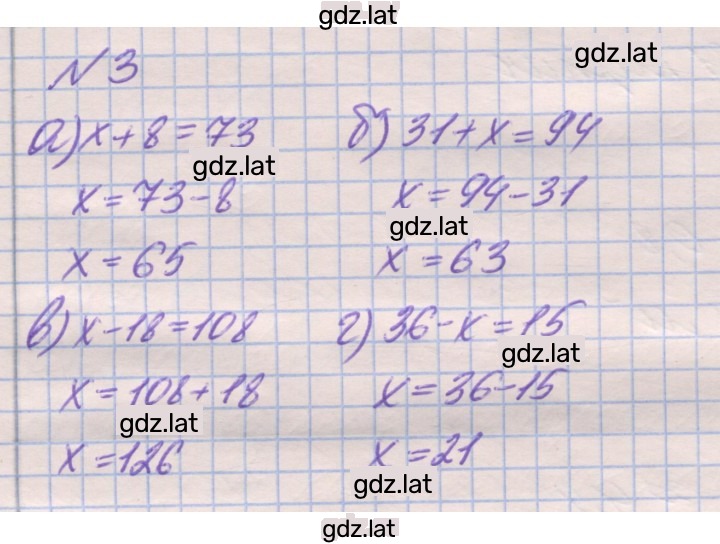 gdz.lat
gdz.lat
№ 3
а) x + 8 = 73
gdz.lat
x = 73 - 8
x = 65
б) 31 + x = 94
x = 94 - 31
gdz.lat
x = 63
в) x - 18 = 108
x = 108 + 18
gdz.lat
x = 126
г) 36 - x = 15
gdz.lat
x = 36 - 15
x = 21
gdz.lat
gdz.lat